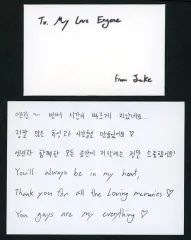 To. My Love Engene
From Jake
엔진 ~ 벌써 시간이 빠르게 지났네요...
정말 많은 추억과 시간들을 만들었어요 ♡
엔진과 함께한 모든 순간이 저에게는 정말 소중해요!
You'll always be in my heart,
Thank you for all the loving memories ♡
You guys are my everything ♡